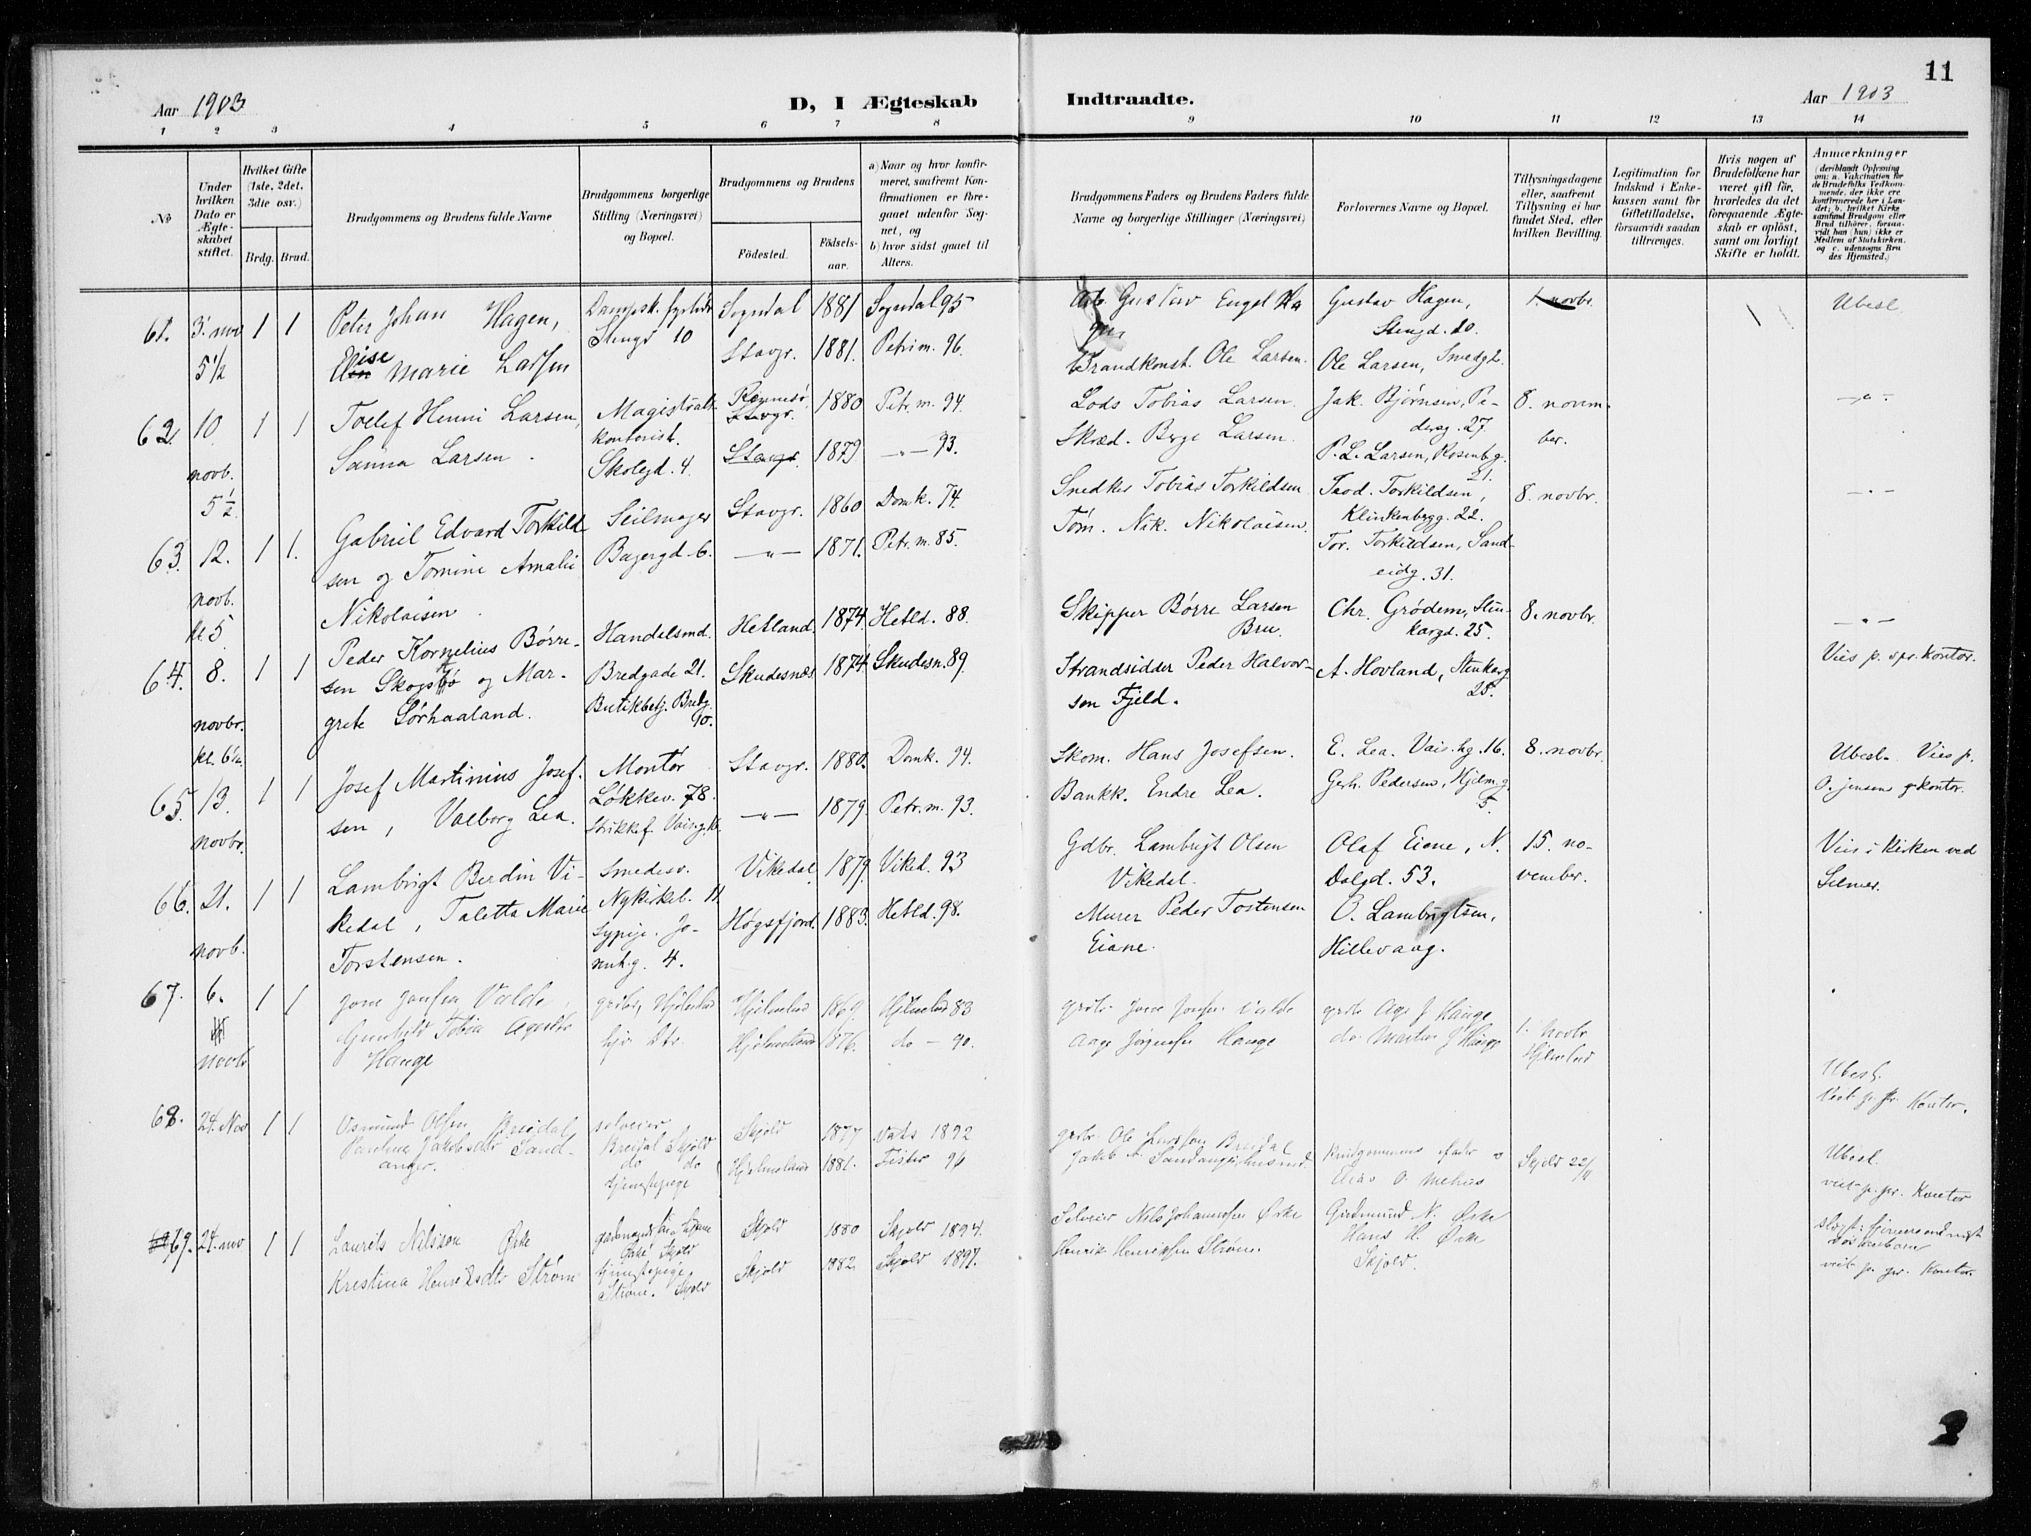 11
Aar 1903
D, I Ægteskab
Indtraadte.
Aar 1903
1 2 3 4 5 6 7 8 9 10 11 12 13 14
No
Under hvilken Dato er Ægteskabet stiftet.
Hvilket Gifte (1ste, 2det, 3die osv.)
Brdg. Brud.
Brudgommens og Brudens fulde Navne
Brudgommens borgerlige Stilling (Næringsvei) og Bopæl.
Brudgommens og Brudens
Födested.
Födselsaar.
a) Naar og hvor konfirmeret, saafremt Konfirmationen er foregaaet udenfor Sognet, og
b) hvor sidst gaaet til Alters.
Brudgommens Faders og Brudens Faders fulde Navne og borgerlige Stillinger (Næringsvei)
Forlovernes Navne og Bopæl.
Tillysningsdagene eller, saafremt Tillysning ei har fundet Sted, efter hvilken Bevilling.
Legitimation for Indskud i Enkekassen samt for Giftetilladelse, forsaavidt saadan tiltrænges.
Hvis nogen af Brudefolkene har været gift för, hvorledes da det foregaaende Ægteskab er oplöst, samt om lovligt Skifte er holdt.
Anmærkninger
(deriblandt Oplysning om: a. Vakcination for de Brudefolks Vedkommende, der ikke ere konfirmerede her i Landet; b. hvilket Kirkesamfund Brudgom eller Brud tilhörer, forsaavidt han (hun) ikke er Medlem af Statskirken, og c. udensogns Brudes Hjemsted.)
61. 3. nov 5 1/2 1 1 Peter Johan Hagen,
Elise Marie Larsen
Stengd 10
Sogndal 1881 Sogndal 95
Stavgr. 1881. Petrim. 96.
Arb. Gustav Engel Hagen
Brandkonst. Ole Larsen.
Gustav Hagen,
Stengd. 10.
Ole Larsen, Smedg 2.
1. novbr.
Ubesl
62. 10 novb. 5 1/2 1 1 Tollef Henni Larsen,
Sanna Larsen.
Magistrats
kontorist.
Skolegd. 4.
Rennesø
Stavgr. 1880 Petr. m. 94.
Stavgr. 1879 -„- 93.
Lods Tobias Larsen.
Skræd. Berge Larsen.
Jak. Bjørnsen, Pe-
dersg. 27.
P. L. Larsen, Rosenbg.
21.
8. novem-
ber.
-„-
63. 12. novb. kl. 5 1 1. Gabriel Edvard Torkild-
sen og Tomine Amalie
Nikolaisen.
Seilmager
Bagergd. 6.
Stavgr. 1860 Domk. 74.
-„- 1871. Petr. m. 85.
Snedker Tobias Torkildsen
Tøm. Nik. Nikolaisen.
Torkildsen,
Klinkenbgg. 22.
Tor. Torkildsen, Sand-
eidg. 31.
8. novbr.
-„-
64. 8. novbr. kl. 6 1/2 1 1 Peder Kornelius Børre-
sen Skogstø og Mar-
grete Sørhaaland.
Handelsmd.
Bredgade 21.
Butikbetj. Bredg.
10.
Hetland. 1874. Hetld. 88.
Skudesnes 1874. Skudesn. 89.
Skipper Børre Larsen
Bru.
Strandsidder Peder Halvor-
sen Fjeld.
Chr. Grødem, Sten-
kargd. 25.
A. Hovland, Stenkarg
25.
8. novbr.
-„-
Vies p. spr. kontor.
65. 13. novbr. 1 1 Josef Martinius Josef-
sen, Valborg Lea.
Montør
Løkkev. 78.
Strikkef. Vais.g. 16.
Stavgr. 1880. Domk. 94.
-„- 1879. Petr. m. 93.
Skom. Hans Josefsen.
Bankk. Endre Lea.
E. Lea. Vais. hg. 16.
Gerh. Pedersen, Hjelmg
5.
8. novbr
Ubesl. Vies p.
O. Jensens kontor.
66. 21. novb. 1 1 Lambrigt Berdin Vi-
kedal, Taletta Marie
Torstensen.
Smedesv.
Nykirkeb. 11.
Sypige. Jo-
renh.g. 4.
Vikedal 1879. Viked. 93
Høgsfjord. 1883. Hetld. 98.
Gdbr. Lambrigt Olsen
Vikedal.
Murer Peder Tostensen
Eiane.
Olaf Eiene, N.
Dalgd. 53.
O. Lambrigtsen,
Hillevaag.
15. no-
vember.
Vies i Kirken ved
Selmer.
67. 6. novbr 1 1 Jone Jonsen Valde,
Gunhild Tobia Agesdtr
Hauge
grdbr, Hjelmeland
Hjelmelnd 1869. Hjelmelnd 83
Hjelmeland 1876. do - 90.
grdbr Jone Jonsen Valde
Aage Jørgensen Hauge
grdb Age J Hauge
do Martin J Hauge
1. Novbr
Hjelmelnd
Ubesl.
Viet p. pr. Kontor.
68. 24. Nov 1 1 Osmund Olsen Breidal
Pauline Jakobsdtr Sand-
anger.
selveier
Breidal Skjold
do do
tjenestepige
Skjold 1877 Vats 1892
Hjelmeland 1881. Fister 96
grdbr. Ole Larssen Breidal
Jakob A. Sandanger husmd.
Brudgommens fader o
Elias O. Mehus
Skjold 22/11
Ubesl.
viet p. pr. Kontor
69. 24. nov 1 1 Laurits Nilsson Ørke
Kristina Henriksdtr Strøm
Ørke Skjold
tjenestepige
Strøm. Skjold
Skjold 1880 Skjold 1894.
Skjold 1882. Skjold 1897.
Selveier Nils Johannessen Ørke
Henrik Henriksen Strøm.
Gudmund N. Ørke
Hans H. Ørke
Skjold.
viet p. pr. Kontor.